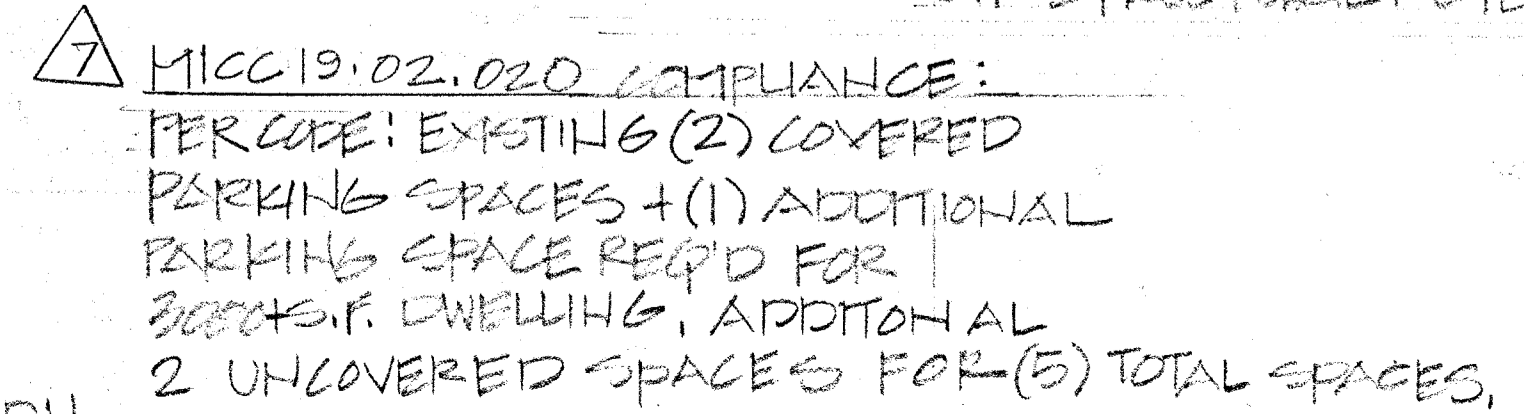 7 MICC 19.02.020 COMPLIANCE:
PER CODE: EXISTING (2) COVERED
PARKING SPACES + (1) ADDITIONAL
PARKING SPACE REQ'D FOR
3000+ S.F. DWELLING, ADDITONAL
2 UNCOVERED SPACES FOR (5) TOTAL SPACES.